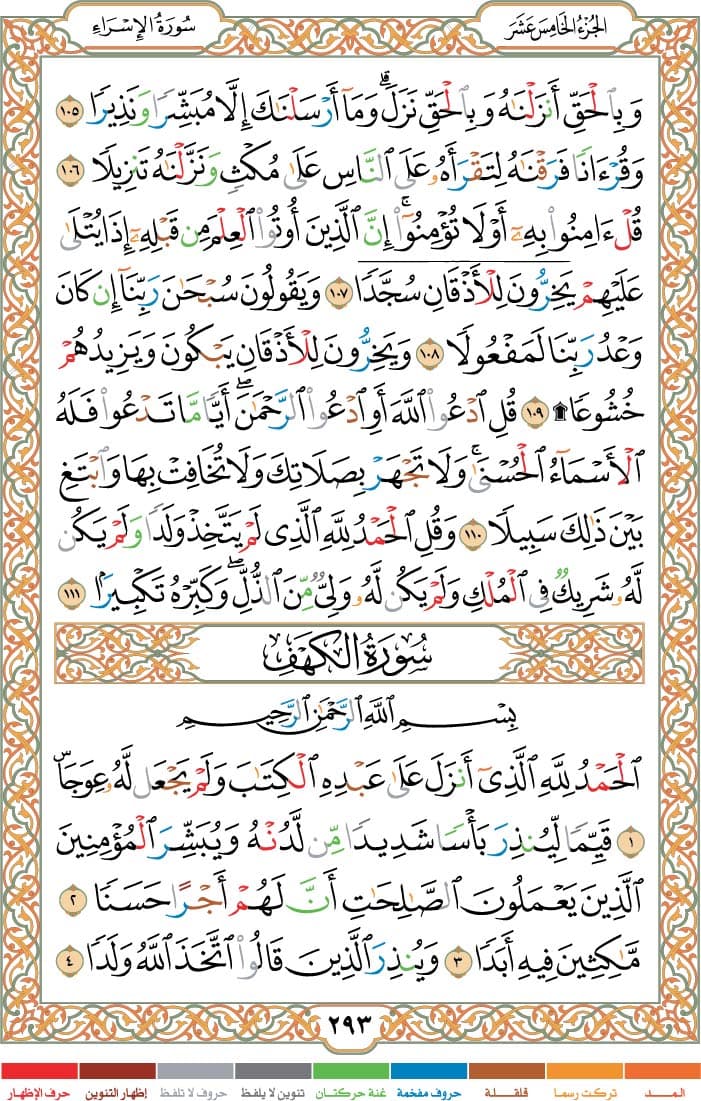 الجزء الخامس عشر
سورة الإسراء
وَبِٱلْحَقِّ أَنزَلْنَٰهُ وَبِٱلْحَقِّ نَزَلَ ۗ وَمَآ أَرْسَلْنَٰكَ إِلَّا مُبَشِّرًا وَنَذِيرًا ١٠٥
وَقُرْءَانًا فَرَقْنَٰهُ لِتَقْرَأَهُۥ عَلَى ٱلنَّاسِ عَلَىٰ مُكْثٍ وَنَزَّلْنَٰهُ تَنزِيلًا ١٠٦
قُلْ ءَامِنُوا۟ بِهِۦٓ أَوْ لَا تُؤْمِنُوٓا۟ ۚ إِنَّ ٱلَّذِينَ أُوتُوا۟ ٱلْعِلْمَ مِن قَبْلِهِۦٓ إِذَا يُتْلَىٰ
عَلَيْهِمْ يَخِرُّونَ لِلْأَذْقَانِ سُجَّدًا ١٠٧ وَيَقُولُونَ سُبْحَٰنَ رَبِّنَآ إِن كَانَ
وَعْدُ رَبِّنَا لَمَفْعُولًا ١٠٨ وَيَخِرُّونَ لِلْأَذْقَانِ يَبْكُونَ وَيَزِيدُهُمْ
خُشُوعًا ۩ ١٠٩ قُلِ ٱدْعُوا۟ ٱللَّهَ أَوِ ٱدْعُوا۟ ٱلرَّحْمَٰنَ ۖ أَيًّا مَّا تَدْعُوا۟ فَلَهُ
ٱلْأَسْمَآءُ ٱلْحُسْنَىٰ ۚ وَلَا تَجْهَرْ بِصَلَاتِكَ وَلَا تُخَافِتْ بِهَا وَٱبْتَغِ
بَيْنَ ذَٰلِكَ سَبِيلًا ١١٠ وَقُلِ ٱلْحَمْدُ لِلَّهِ ٱلَّذِى لَمْ يَتَّخِذْ وَلَدًا وَلَمْ يَكُن
لَّهُۥ شَرِيكٌ فِى ٱلْمُلْكِ وَلَمْ يَكُن لَّهُۥ وَلِىٌّ مِّنَ ٱلذُّلِّ ۖ وَكَبِّرْهُ تَكْبِيرًۢا ١١١
سُورَةُ الكَهْفِ
بِسْمِ ٱللَّهِ ٱلرَّحْمَٰنِ ٱلرَّحِيمِ
ٱلْحَمْدُ لِلَّهِ ٱلَّذِىٓ أَنزَلَ عَلَىٰ عَبْدِهِ ٱلْكِتَٰبَ وَلَمْ يَجْعَل لَّهُۥ عِوَجَا ۜ
١ قَيِّمًا لِّيُنذِرَ بَأْسًا شَدِيدًا مِّن لَّدُنْهُ وَيُبَشِّرَ ٱلْمُؤْمِنِينَ
ٱلَّذِينَ يَعْمَلُونَ ٱلصَّٰلِحَٰتِ أَنَّ لَهُمْ أَجْرًا حَسَنًا ٢
مَّٰكِثِينَ فِيهِ أَبَدًا ٣ وَيُنذِرَ ٱلَّذِينَ قَالُوا۟ ٱتَّخَذَ ٱللَّهُ وَلَدًا ٤
٢٩٣
المـــد تركت رسما قلقلة حروف مفخمة غنة حركتان تنوين لا يلفظ حروف لا تلفظ إظهار التنوين حرف الإظهار